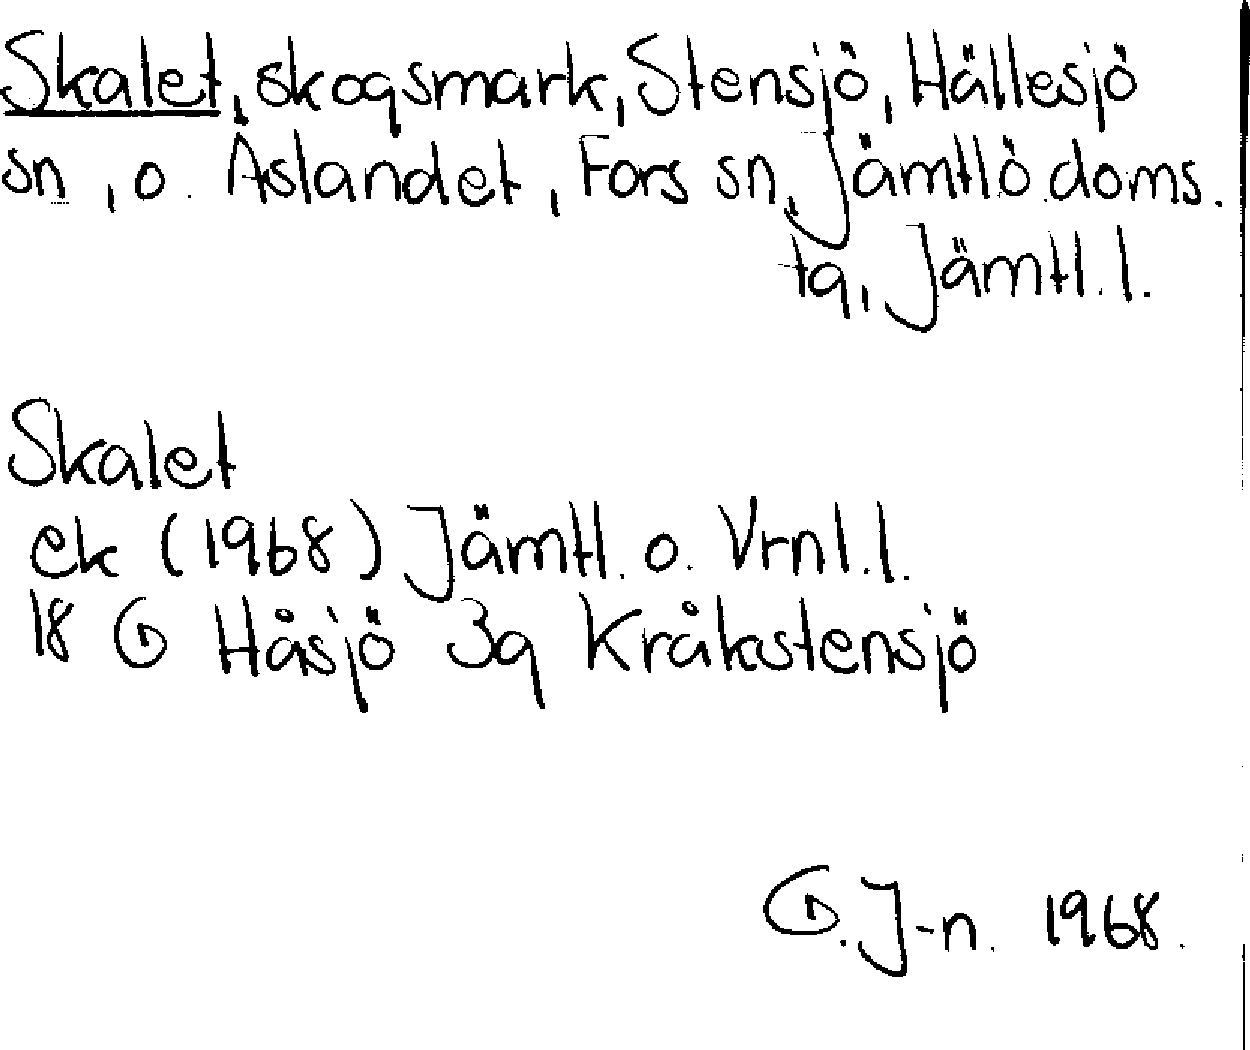 Skalet, skogsmark, Stensjö, Hällesjö
sn, o. Åslandet, Fors sn, Jämtlö. doms.
tg, Jämtl. l.
Skalet
ek (1968) Jämtl. o. Vrnl. l.
18 G Håsjö 3g Kråkstensjö
G. J-n. 1968.